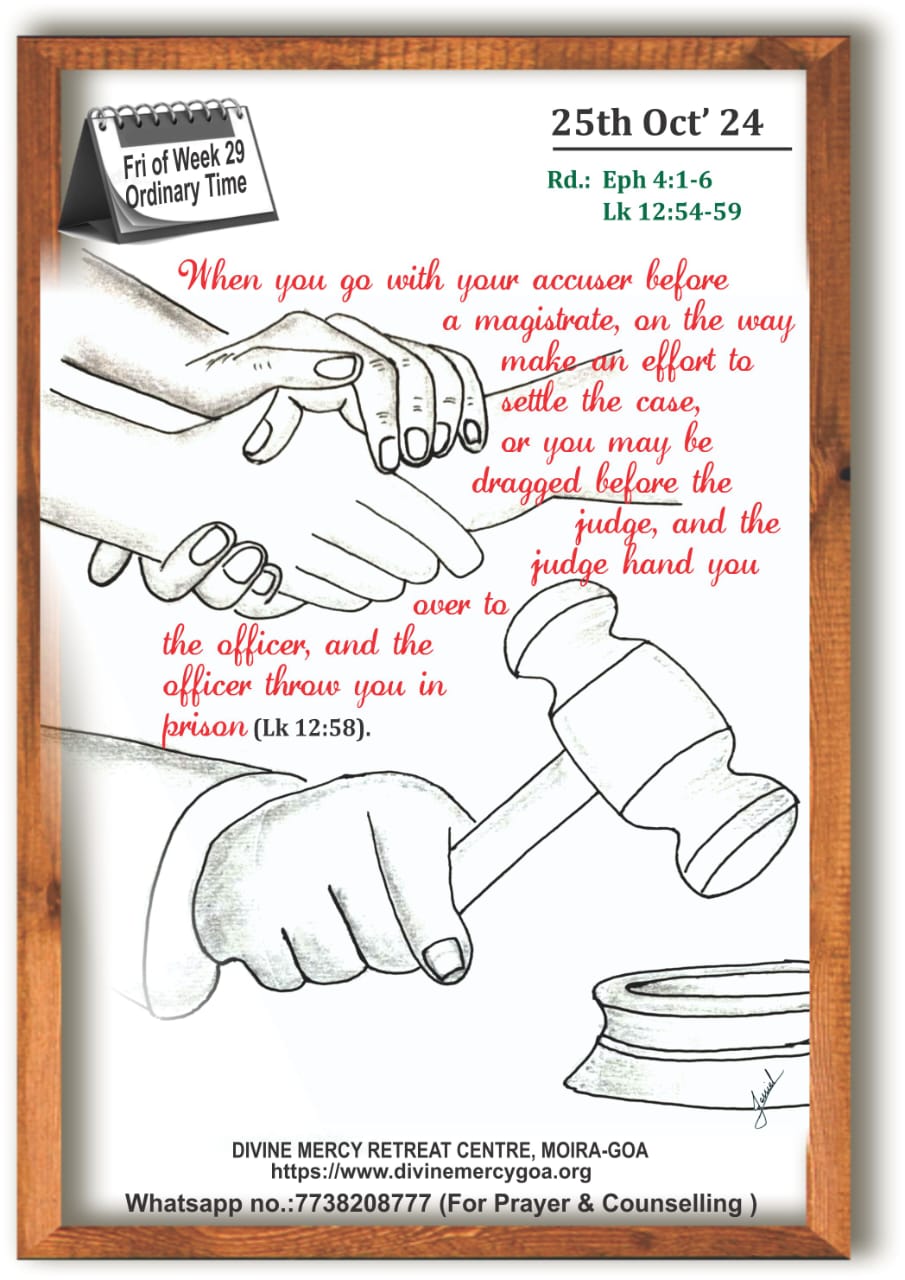 Fri of Week 29
Ordinary Time
25th Oct’ 24
Rd.: Eph 4:1-6
Lk 12:54-59
When you go with your accuser before
a magistrate, on the way
make an effort to
settle the case,
or you may be
dragged before the
judge, and the
judge hand you
over to
the officer, and the
officer throw you in
prison (Lk 12:58).
DIVINE MERCY RETREAT CENTRE, MOIRA-GOA
https://www.divinemercygoa.org
Whatsapp no.:7738208777 (For Prayer & Counselling )